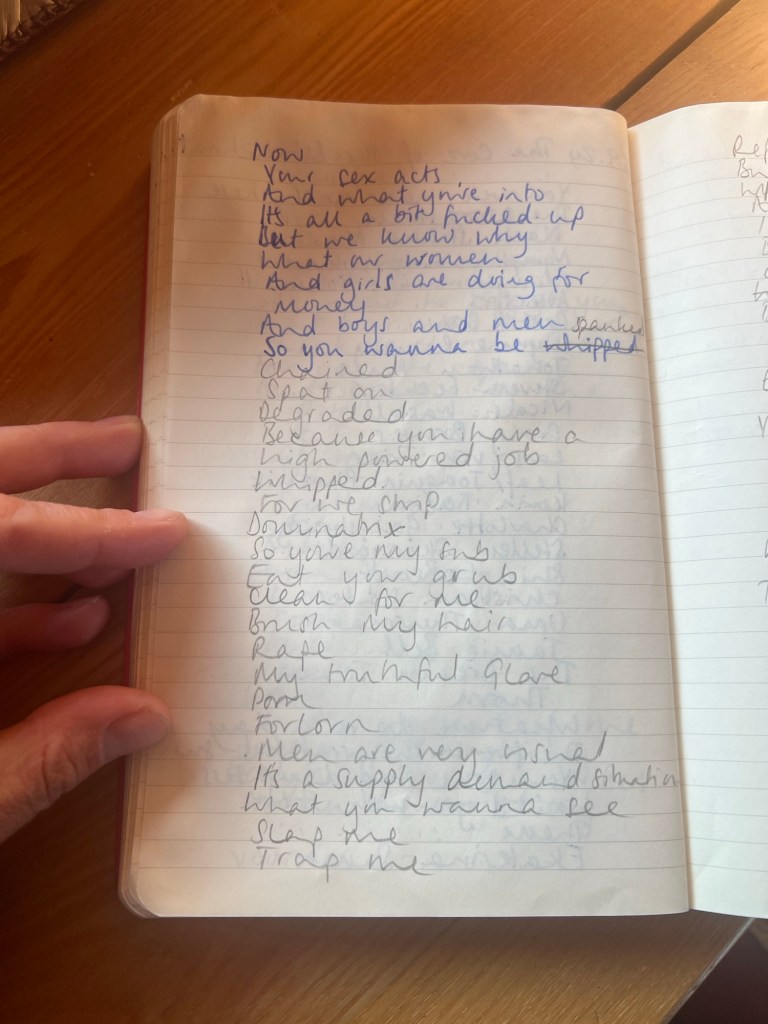 Now
Your sex acts
And what you're into
Its all a bit fucked up
But we know why
What our women
And girls are doing for
money
And boys and men spanked
So you wanna be whipped
Chained
Spat on
Degraded
Because you have a
high powered job
Whipped
For we strip
Dominatrix
So you're my sub
Eat your grub
Clean for me
Brush my hair
Rape
My truthful Glare
Porn
Forlorn
Men are very visual
It's a supply demand situation
What you wanna see
Slap me
Trap me